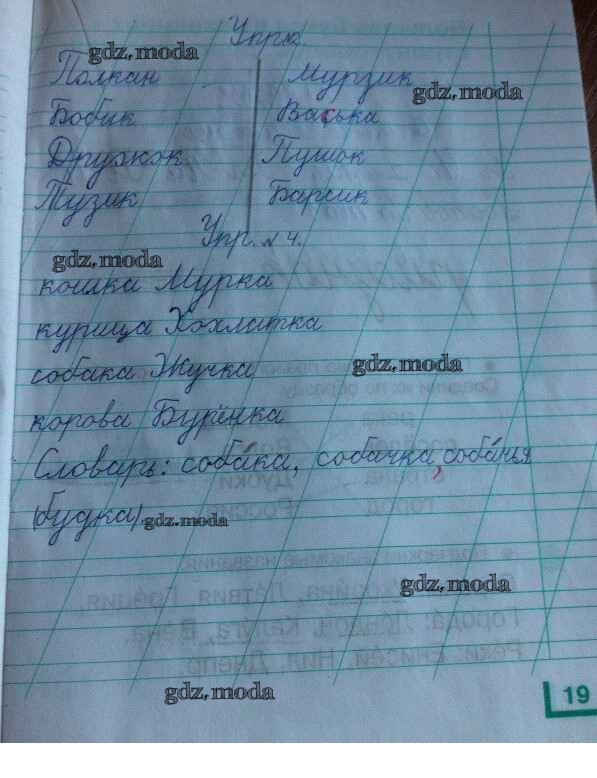 Упр.
gdz.moda
Полкан Мурзик
gdz.moda
Бобик Васька
Дружок Пушок
Тузик Барсик
Упр. № 4.
gdz.moda
кошка Мурка
курица Хохлатка
gdz.moda
собака Жучка
корова Бурёнка
Словарь: соба́ка, собачка, соба́чья
(будка). gdz.moda
gdz.moda
gdz.moda
19